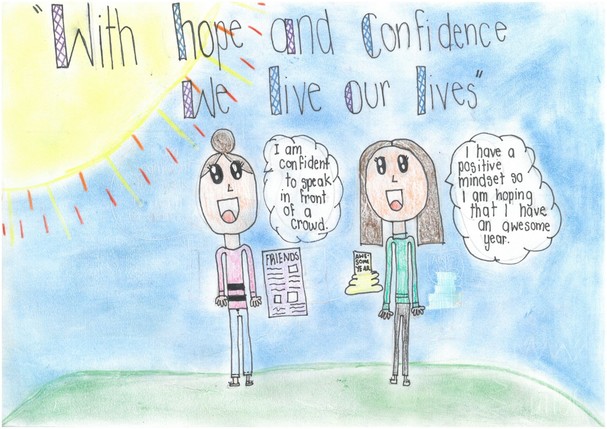 "With hope and Confidence
We live our lives"
I am
confident
to speak
in front
of a
crowd.
I have a
positive
mindset so
I am hoping
that I have
an awesome
year.
FRIENDS
AWE-
SOME
YEAR